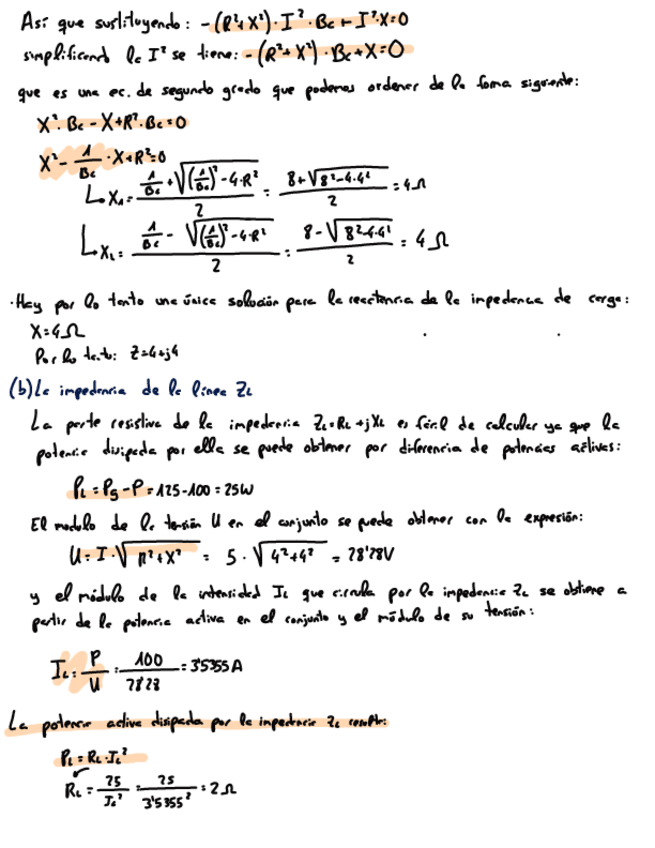 Así que sustituyendo: -(R²+X²)·I²·Bc + I²·X=0
simplificando la I² se tiene: -(R²+X²)·Bc+X=0
que es una ec. de segundo grado que podemos ordenar de la forma siguiente:
X²·Bc - X+R²·Bc=0
X² - 1/Bc ·X+R²=0
X₁= (1/Bc + √((1/Bc)²-4·R²))/2 = (8+√(8²-4·4²))/2 = 4Ω
X₂= (1/Bc - √((1/Bc)²-4·R²))/2 = (8-√(8²-4·4²))/2 = 4Ω
·Hay por lo tanto una única solución para la reactancia de la impedancia de carga:
X=4Ω
Por lo tanto: Z=4+j4
(b) La impedancia de la línea ZL
La parte resistiva de la impedancia ZL=RL+jXL es fácil de calcular ya que la
potencia disipada por ella se puede obtener por diferencia de potencias activas:
PL = Pg - P = 125-100 = 25W
El modulo de la tensión U en el conjunto se puede obtener con la expresión:
U = I·√(R²+X²) = 5·√(4²+4²) = 28'28V
y el módulo de la intensidad IL que circula por la impedancia ZL se obtiene a
partir de la potencia activa en el conjunto y el módulo de su tensión:
IL = P/U = 100/28'28 = 3'5355A
La potencia activa disipada por la impedancia ZL resulta:
PL = RL·IL²
RL = 25/IL² = 25/3'5355² = 2Ω